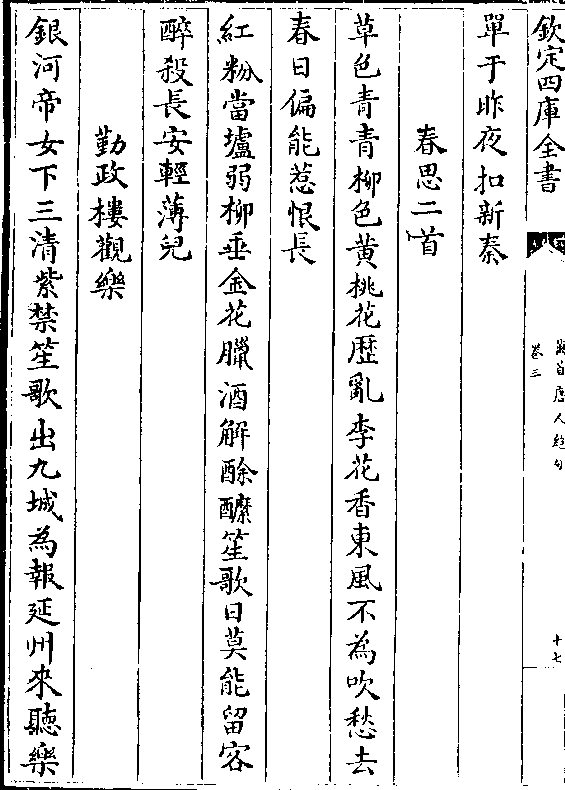 欽定四庫全書
卷三
十七
單于昨夜扣新秦
春思二首
草色青青柳色黄桃花歴亂李花香東風不為吹愁去
春日偏能惹恨長
紅粉當壚弱柳垂金花臘酒解酴醿笙歌日莫能留客
醉殺長安輕薄兒
勤政樓觀樂
銀河帝女下三清紫禁笙歌出九城為報延州來聽樂